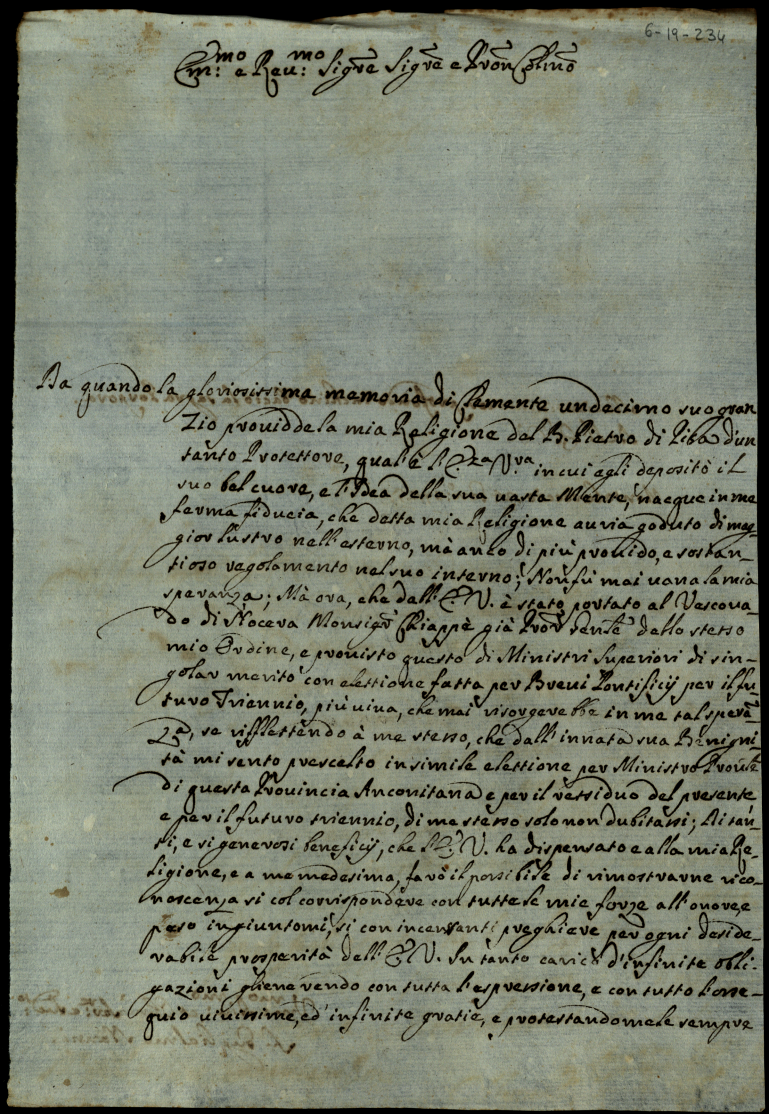 6-19-234
Em:mo e Reu:mo Sigre Sigre e Pron Colmo
Da quando la gloriosissima memoria di Clemente undecimo suo gran
Zio prouidde la mia Religione del B. Pietro di Pisa d'un
tanto Protettore, qual'è l'E:za V:ra in cui egli depositò il
suo bel cuore, e l'Idea della sua uasta Mente, nacque in me
ferma fiducia, che detta mia Religione auria goduto di mag-
gior lustro nell'esterno, mà anco di più prouido, e sostan-
tioso regolamento nel suo interno; Non fù mai uana la mia
speranza; Mà ora, che dall'E: V. è stato portato al Vescoua-
do di Nocera Monsigr Chiappè già Pror Genle dello stesso
mio Ordine, e prouisto questo di Ministri Superiori di sin-
golar merito con elettione fatta per Breui Pontificij per il fu-
turo Triennio, più uiua, che mai risorgerebbe in me tal sperã-
za, se riflettendo à me stesso, che dall'innata sua Benigni-
tà mi sento prescelto in simile elettione per Ministro Prouле
di questa Prouincia Anconitana e per il residuo del presente
e per il futuro triennio, di me stesso solo non dubitassi; Di tan-
ti, e sì generosi beneficij, che l'E: V. ha dispensato e alla mia Re-
ligione, e a me medesimo, farò il possibile di rimostrarne rico-
noscenza si col corrispondere con tutte le mie forze all'onore, e
peso ingiuntomi, si con incessanti preghiere per ogni deside-
rabile prosperità dell'E: V. In tanto carico d'infinite obli-
gazioni gliene rendo con tutta l'espressione, e con tutto l'osse-
quio uiuissime, ed infinite gratie, e protestandomele sempre